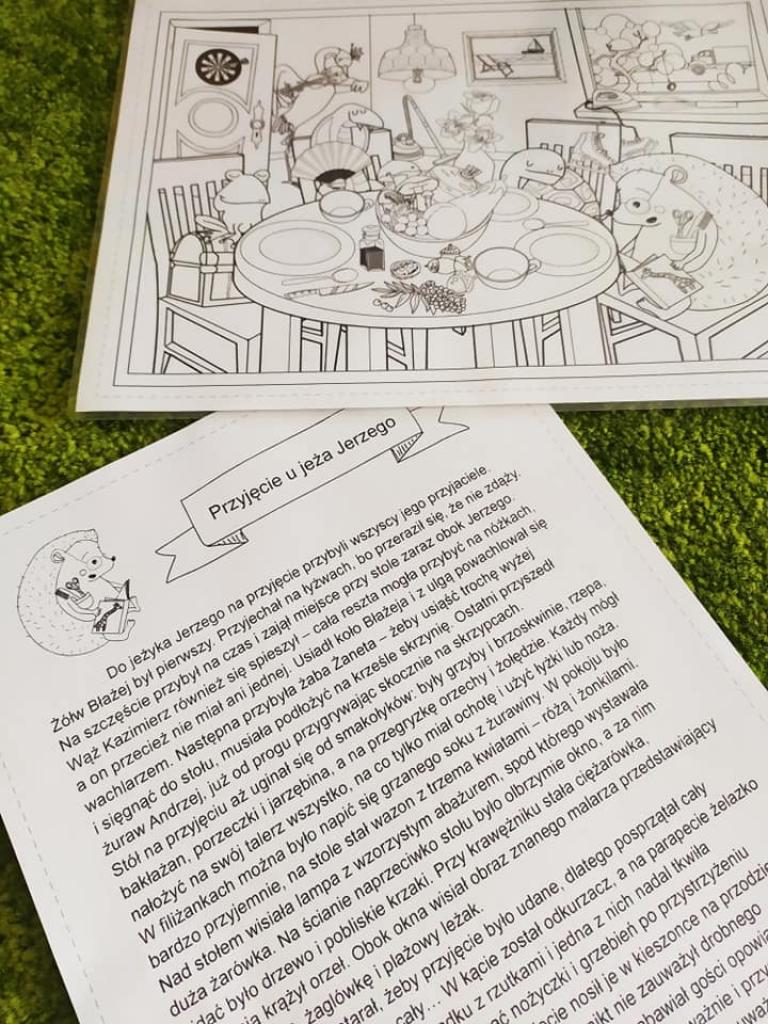 Przyjęcie u jeża Jerzego
Do jeżyka Jerzego na przyjęcie przybyli wszyscy jego przyjaciele.
Żółw Błażej był pierwszy. Przyjechał na łyżwach, bo przeraził się, że nie zdąży.
Na szczęście przybył na czas i zajął miejsce przy stole zaraz obok Jerzego.
Wąż Kazimierz również się spieszył – cała reszta mogła przybyć na nóżkach,
a on przecież nie miał ani jednej. Usiadł koło Błażeja i z ulgą powachlował się
wachlarzem. Następnie przybyła żaba Żaneta – żeby usiąść trochę wyżej
i sięgnąć do stołu, musiała podłożyć na krześle skrzynię. Ostatni przyszedł
żuraw Andrzej, już od progu przygrywając skocznie na skrzypcach.
Stół na przyjęciu aż uginał się od smakołyków: były grzyby i brzoskwinie, rzepa,
bakłażan, porzeczki i jarzębina, a na przegryzkę orzechy i żołędzie. Każdy mógł
nałożyć na swój talerz wszystko, na co tylko miał ochotę i użyć łyżki lub noża.
W filiżankach można było napić się grzanego soku z żurawiny. W pokoju było
bardzo przyjemnie, na stole stał wazon z trzema kwiatami – różą i żonkilami.
Nad stołem wisiała lampa z wzorzystym abażurem, spod którego wystawała
duża żarówka. Na ścianie naprzeciwko stołu było olbrzymie okno, a za nim
idać było drzewo i pobliskie krzaki. Przy krawężniku stała ciężarówka,
krążył orzeł. Obok okna wisiał obraz znanego malarza przedstawiający
żaglówkę i plażowy leżak.
starał, żeby przyjęcie było udane, dlatego posprzątał cały
cały... W kącie został odkurzacz, a na parapecie żelazko
z rzutkami i jedna z nich nadal tkwiła
nożyczki i grzebień po przystrzyżeniu
nosił je w kieszonce na przodzie
nikt nie zauważył drobnego
gości